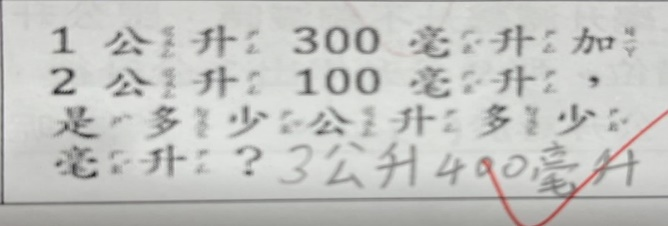 1 公升 300 毫升加
2 公升 100 毫升，
是多少公升多少
毫升？3公升400毫升